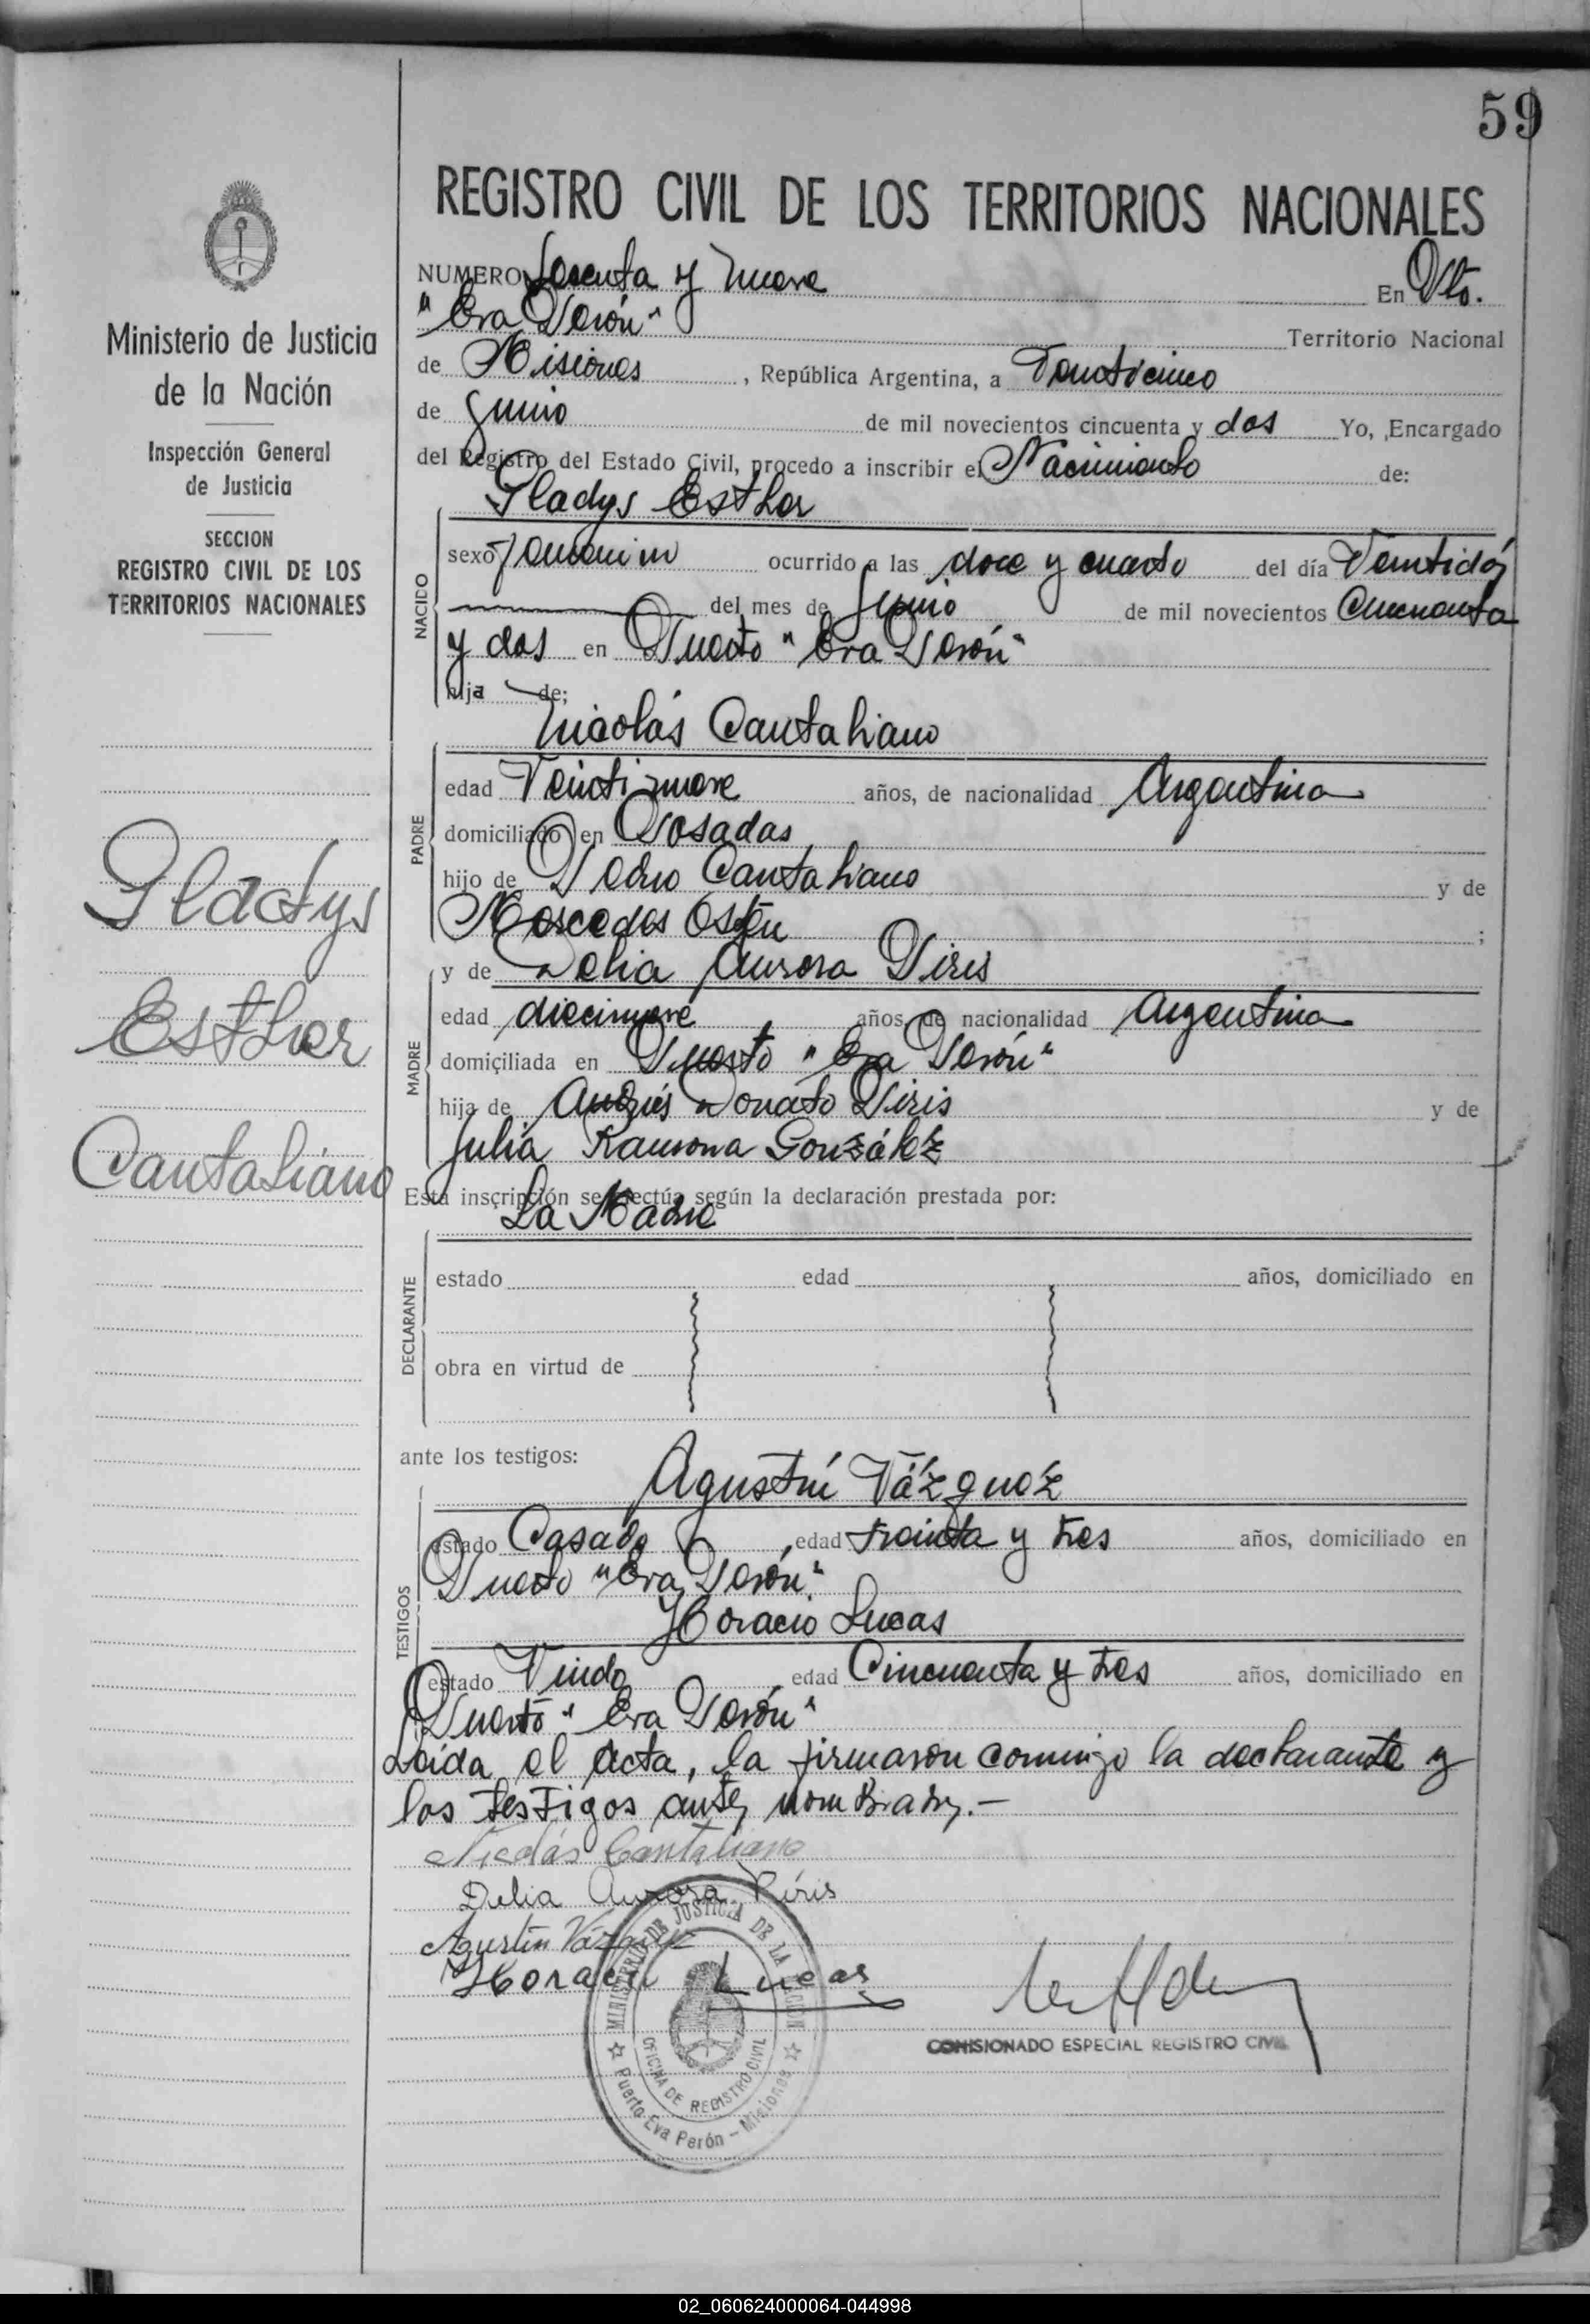 59
REGISTRO CIVIL DE LOS TERRITORIOS NACIONALES
Ministerio de Justicia
de la Nación
Inspección General
de Justicia
SECCION
REGISTRO CIVIL DE LOS
TERRITORIOS NACIONALES
Gladys
Esther
Cantaliano
NUMERO Sesenta y nueve En Pto.
"Eva Perón" Territorio Nacional
de Misiones, República Argentina, a Veinticinco
de Junio de mil novecientos cincuenta y dos Yo, Encargado
del Registro del Estado Civil, procedo a inscribir el Nacimiento de:
Gladys Esther
NACIDO
sexo femenino ocurrido a las doce y cuarto del día Veintidós
del mes de Junio de mil novecientos Cincuenta
y dos en Puerto "Eva Perón"
hija de:
Nicolás Cantaliano
PADRE
edad Veintinueve años, de nacionalidad Argentina
domiciliado en Posadas
hijo de Pedro Cantaliano y de
Mercedes ;
y de Delia Aurora Piris
MADRE
edad diecinueve años, de nacionalidad Argentina
domiciliada en Puerto "Eva Perón"
hija de Andrés Donato Piris y de
Julia Ramona González
Esta inscripción se efectúa según la declaración prestada por:
La Madre
DECLARANTE
estado edad años, domiciliado en
obra en virtud de
ante los testigos:
Agustín Vázquez
TESTIGOS
estado Casado edad treinta y tres años, domiciliado en
Puerto "Eva Perón"
Horacio Lucas
estado Viudo edad Cincuenta y tres años, domiciliado en
Puerto "Eva Perón"
Leída el acta, la firmaron conmigo la declarante y
los testigos antes nombrados.-
Nicolás Cantaliano
Delia Aurora Piris
Agustín Vázquez
Horacio Lucas
COMISIONADO ESPECIAL REGISTRO CIVIL
MINISTERIO DE JUSTICIA DE LA NACION
OFICINA DE REGISTRO CIVIL
Puerto Eva Perón - Misiones
02_060624000064-044998